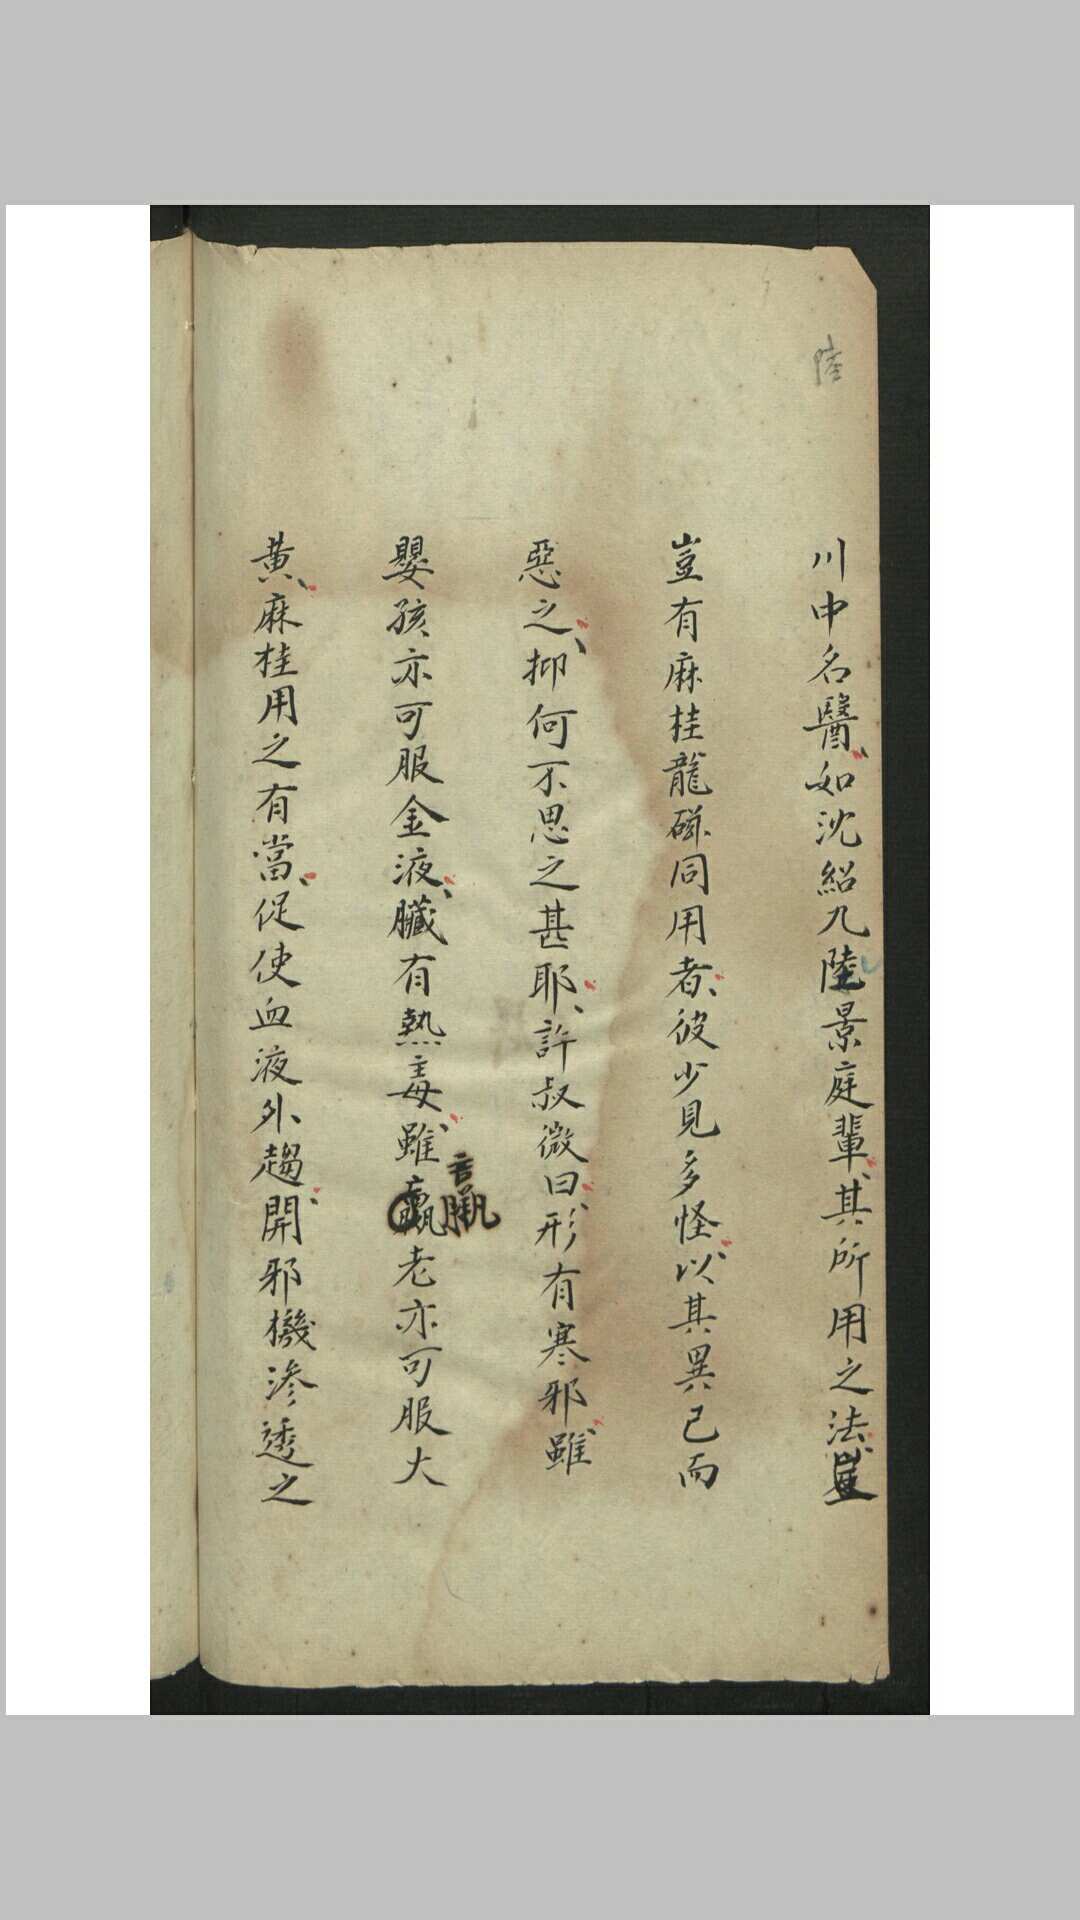 陸
川中名醫、如沈紹九陸景庭輩、其所用之法、豈
豈有麻桂龍磁同用者、彼少見多怪、以其異己而
惡之、抑何不思之甚耶、許叔微曰、形有寒邪、雖
嬰孩亦可服金液、臟有熱毒、雖羸羸老亦可服大
黄、麻桂用之有當、促使血液外趨、開邪機滲透之